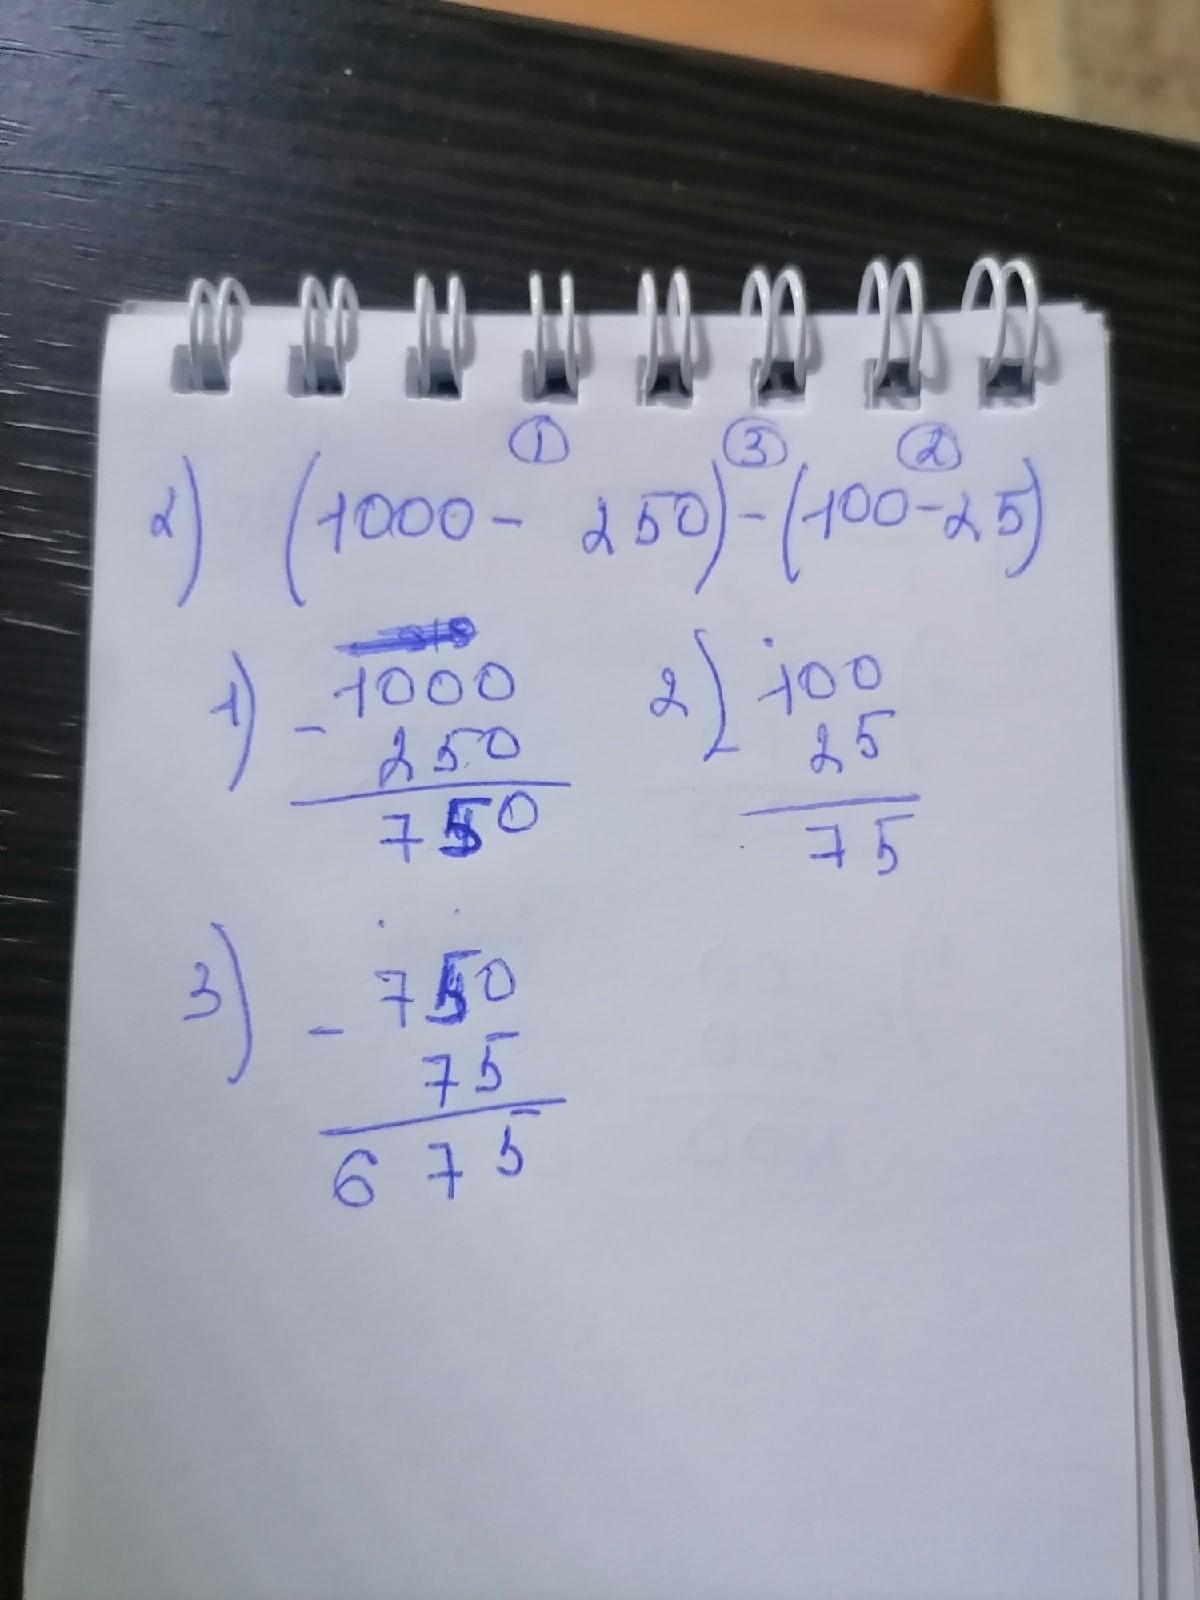 ① ③ ②
2) (1000 - 250) - (100 - 25)
1) - 1000
250
750
2) - 100
25
75
3) - 750
75
675